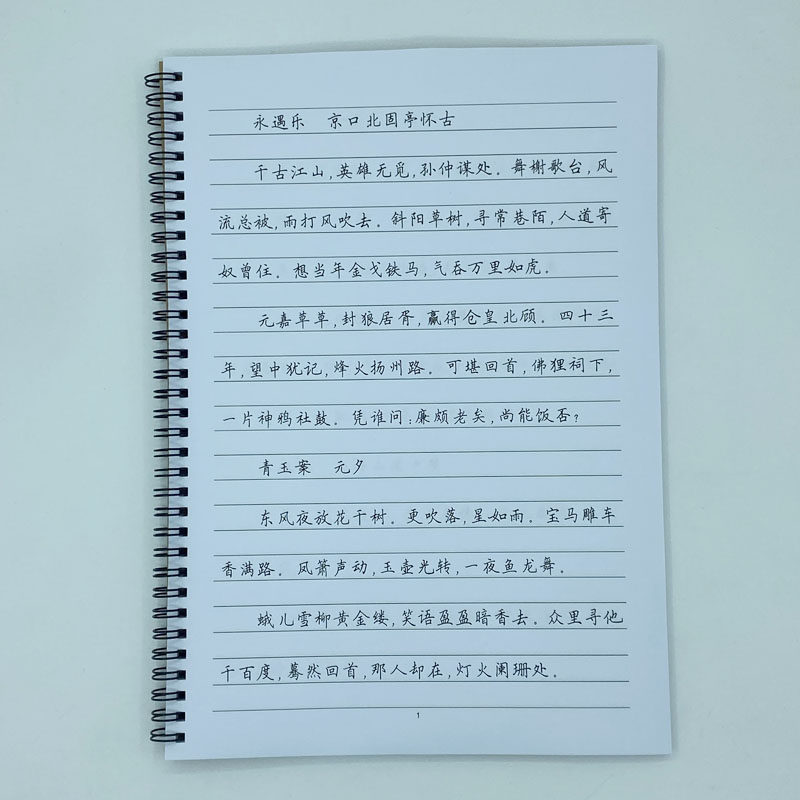 永遇乐 京口北固亭怀古
千古江山,英雄无觅,孙仲谋处。舞榭歌台,风
流总被,雨打风吹去。斜阳草树,寻常巷陌,人道寄
奴曾住。想当年金戈铁马,气吞万里如虎。
元嘉草草,封狼居胥,赢得仓皇北顾。四十三
年,望中犹记,烽火扬州路。可堪回首,佛狸祠下,
一片神鸦社鼓。凭谁问:廉颇老矣,尚能饭否?
青玉案 元夕
东风夜放花千树。更吹落,星如雨。宝马雕车
香满路。凤箫声动,玉壶光转,一夜鱼龙舞。
蛾儿雪柳黄金缕,笑语盈盈暗香去。众里寻他
千百度,蓦然回首,那人却在,灯火阑珊处。
1